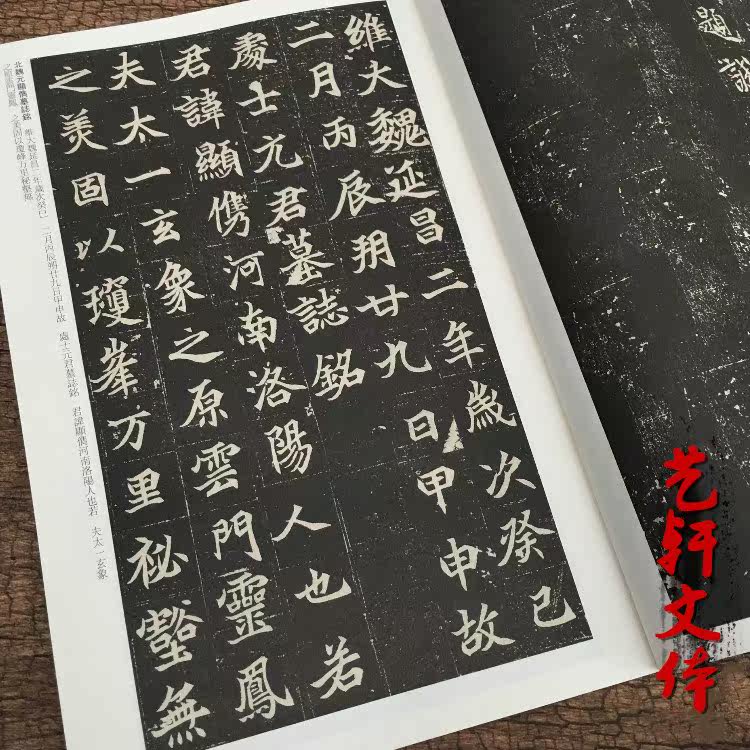 維大魏延昌二年歲次癸巳
二月丙辰朔廿九日甲申故
處士元君墓誌銘
君諱顯儁河南洛陽人也若
夫太一玄象之原雲門靈鳳
之美固以瓊峯万里祕壑無
北魏元顯儁墓誌銘 維大魏延昌二年歲次癸巳 二月丙辰朔廿九日甲申故 處士元君墓誌銘 君諱顯儁河南洛陽人也若 夫太一玄象
之原雲門靈鳳 之美固以瓊峰万里秘壑無
艺轩文体